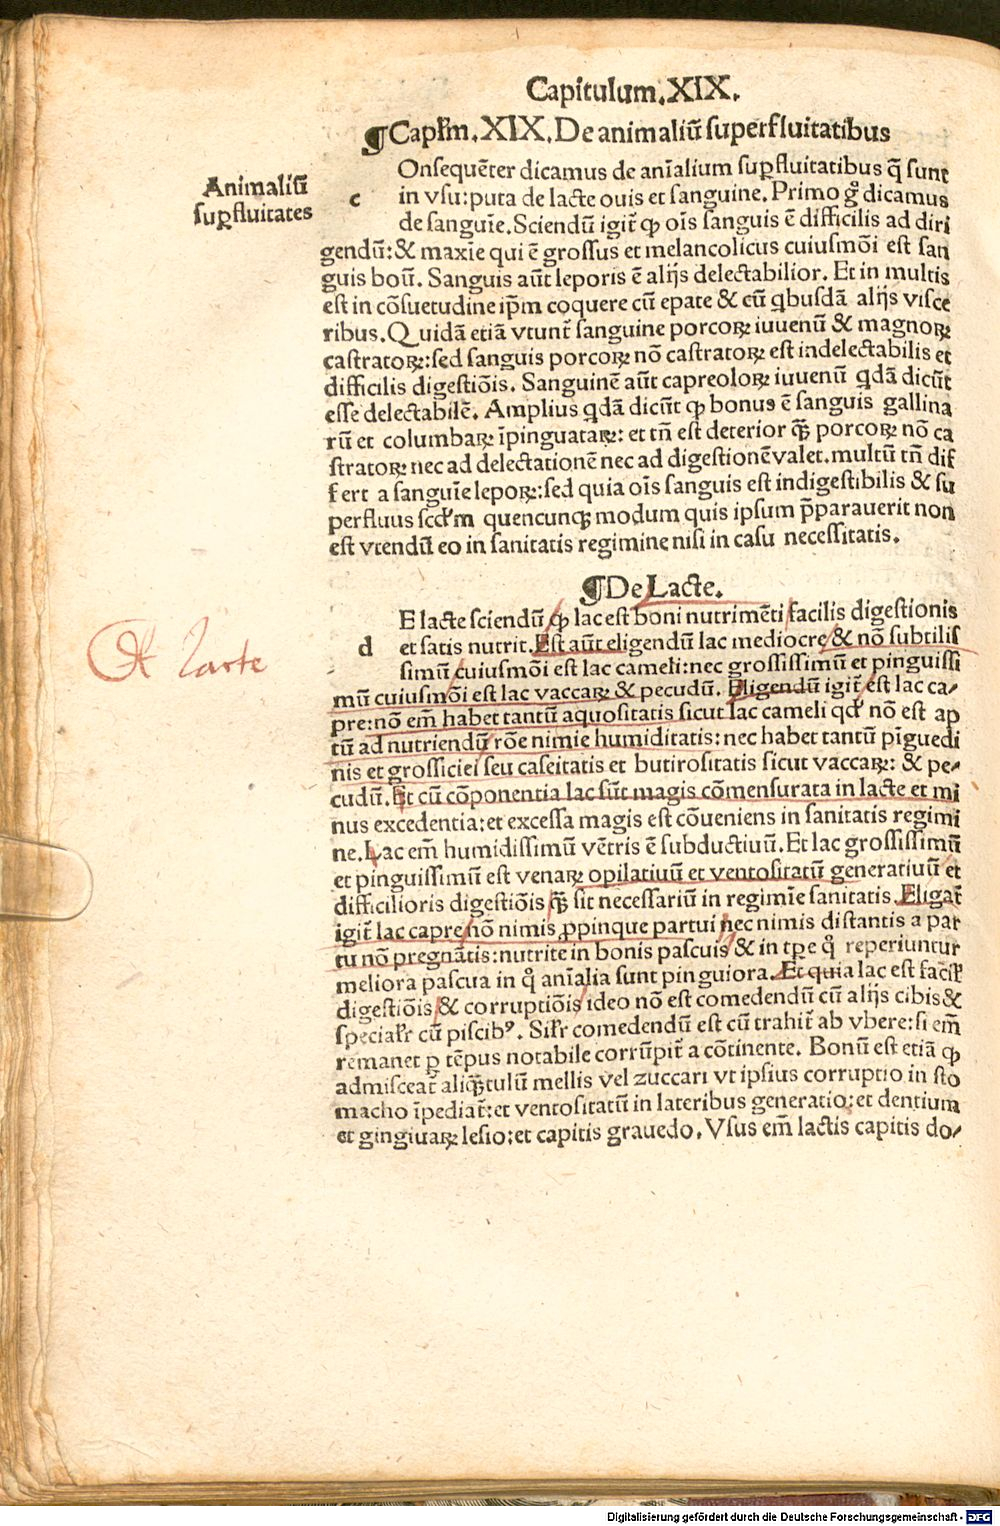 Capitulum.XIX.
¶Capłm.XIX.De animaliū superfluitatibus
Animaliū
suꝑfluitates
c
Onsequēter dicamus de aīalium suꝑfluitatibus q̄ sunt
in vsu:puta de lacte ouis et sanguine.Primo gͦ dicamus
de sanguīe.Sciendū igit̄ ꝙ oīs sanguis ē difficilis ad diri
gendū:& maxīe qui ē grossus et melancolicus cuiusmōi est san
guis boū. Sanguis aūt leporis ē alijs delectabilior. Et in multis
est in cōsuetudine ip̄m coquere cū epate & cū qͥbusdā alijs visce
ribus.Quidā etiā vtunt̄ sanguine porcoꝝ iuuenū & magnoꝝ
castratoꝝ:sed sanguis porcoꝝ nō castratoꝝ est indelectabilis et
difficilis digestiōis. Sanguinē aūt capreoloꝝ iuuenū qͥdā dicūt
esse delectabilē. Amplius qͥdā dicūt ꝙ bonus ē sanguis gallina
rū et columbaꝝ īpinguataꝝ: et tn̄ est deterior qͣꝫ porcoꝝ nō ca
stratoꝝ nec ad delectationē nec ad digestionē valet.multū tn̄ dif
fert a sanguīe lepoꝝ:sed quia oīs sanguis est indigestibilis & su
perfluus scd̓m quencunqꝫ modum quis ipsum p̄parauerit non
est vtendū eo in sanitatis regimine nisi in casu necessitatis.
¶De Lacte.
d
E lacte sciendū ꝙ lac est boni nutrimēti facilis digestionis
et satis nutrit.Est aūt eligendū lac mediocre & nō subtilis
simū cuiusmōi est lac cameli:nec grossissimū et pinguissi
mū cuiusmōi est lac vaccaꝝ & pecudū. Eligendū igit̄ est lac ca/
pre:nō em̄ habet tantū aquositatis sicut lac cameli qd̓ nō est ap
tū ad nutriendū rōe nimie humiditatis:nec habet tantū pīguedi
nis et grossiciei seu caseitatis et butirositatis sicut vaccaꝝ: & pe/
cudū.Et cū cōponentia lac sūt magis cōmensurata in lacte et mi
nus excedentia:et excessa magis est cōueniens in sanitatis regimi
ne.Lac em̄ humidissimū vētris ē subductiuū.Et lac grossissimū
et pinguissimū est venaꝝ opilatiuū et ventositatū generatiuū et
difficilioris digestiōis qͣꝫ sit necessariū in regimīe sanitatis.Eligat̄
igit̄ lac capre nō nimis ꝓpinque partui nec nimis distantis a par
tu nō pregnātis:nutrite in bonis pascuis & in tꝑe qͦ reperiuntur
meliora pascua in qͦ aīalia sunt pinguiora.Et quia lac est facil̓
digestiōis & corruptiōis ideo nō est comedendū cū alijs cibis &
specialr̓ cū piscibꝰ. Silr̓ comedendū est cū trahit̄ ab vbere:si em̄
remanet ꝑ tēpus notabile corrūpit̄ a cōtinente. Bonū est etiā ꝙ
admisceat̄ aliqͣꝫtulū mellis vel zuccari vt ipsius corruptio in sto
macho īpediat̄:et ventositatū in lateribus generatio:et dentium
et gingiuaꝝ lesio:et capitis grauedo. Vsus em̄ lactis capitis do/
Lacte
Digitalisierung gefördert durch die Deutsche Forschungsgemeinschaft - DFG